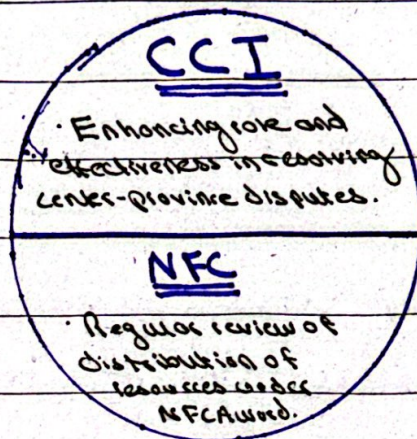 CCI
· Enhancing role and
effectiveness in resolving
center-province disputes.
NFC
· Regular review of
distribution of
resources under
NFC Award.